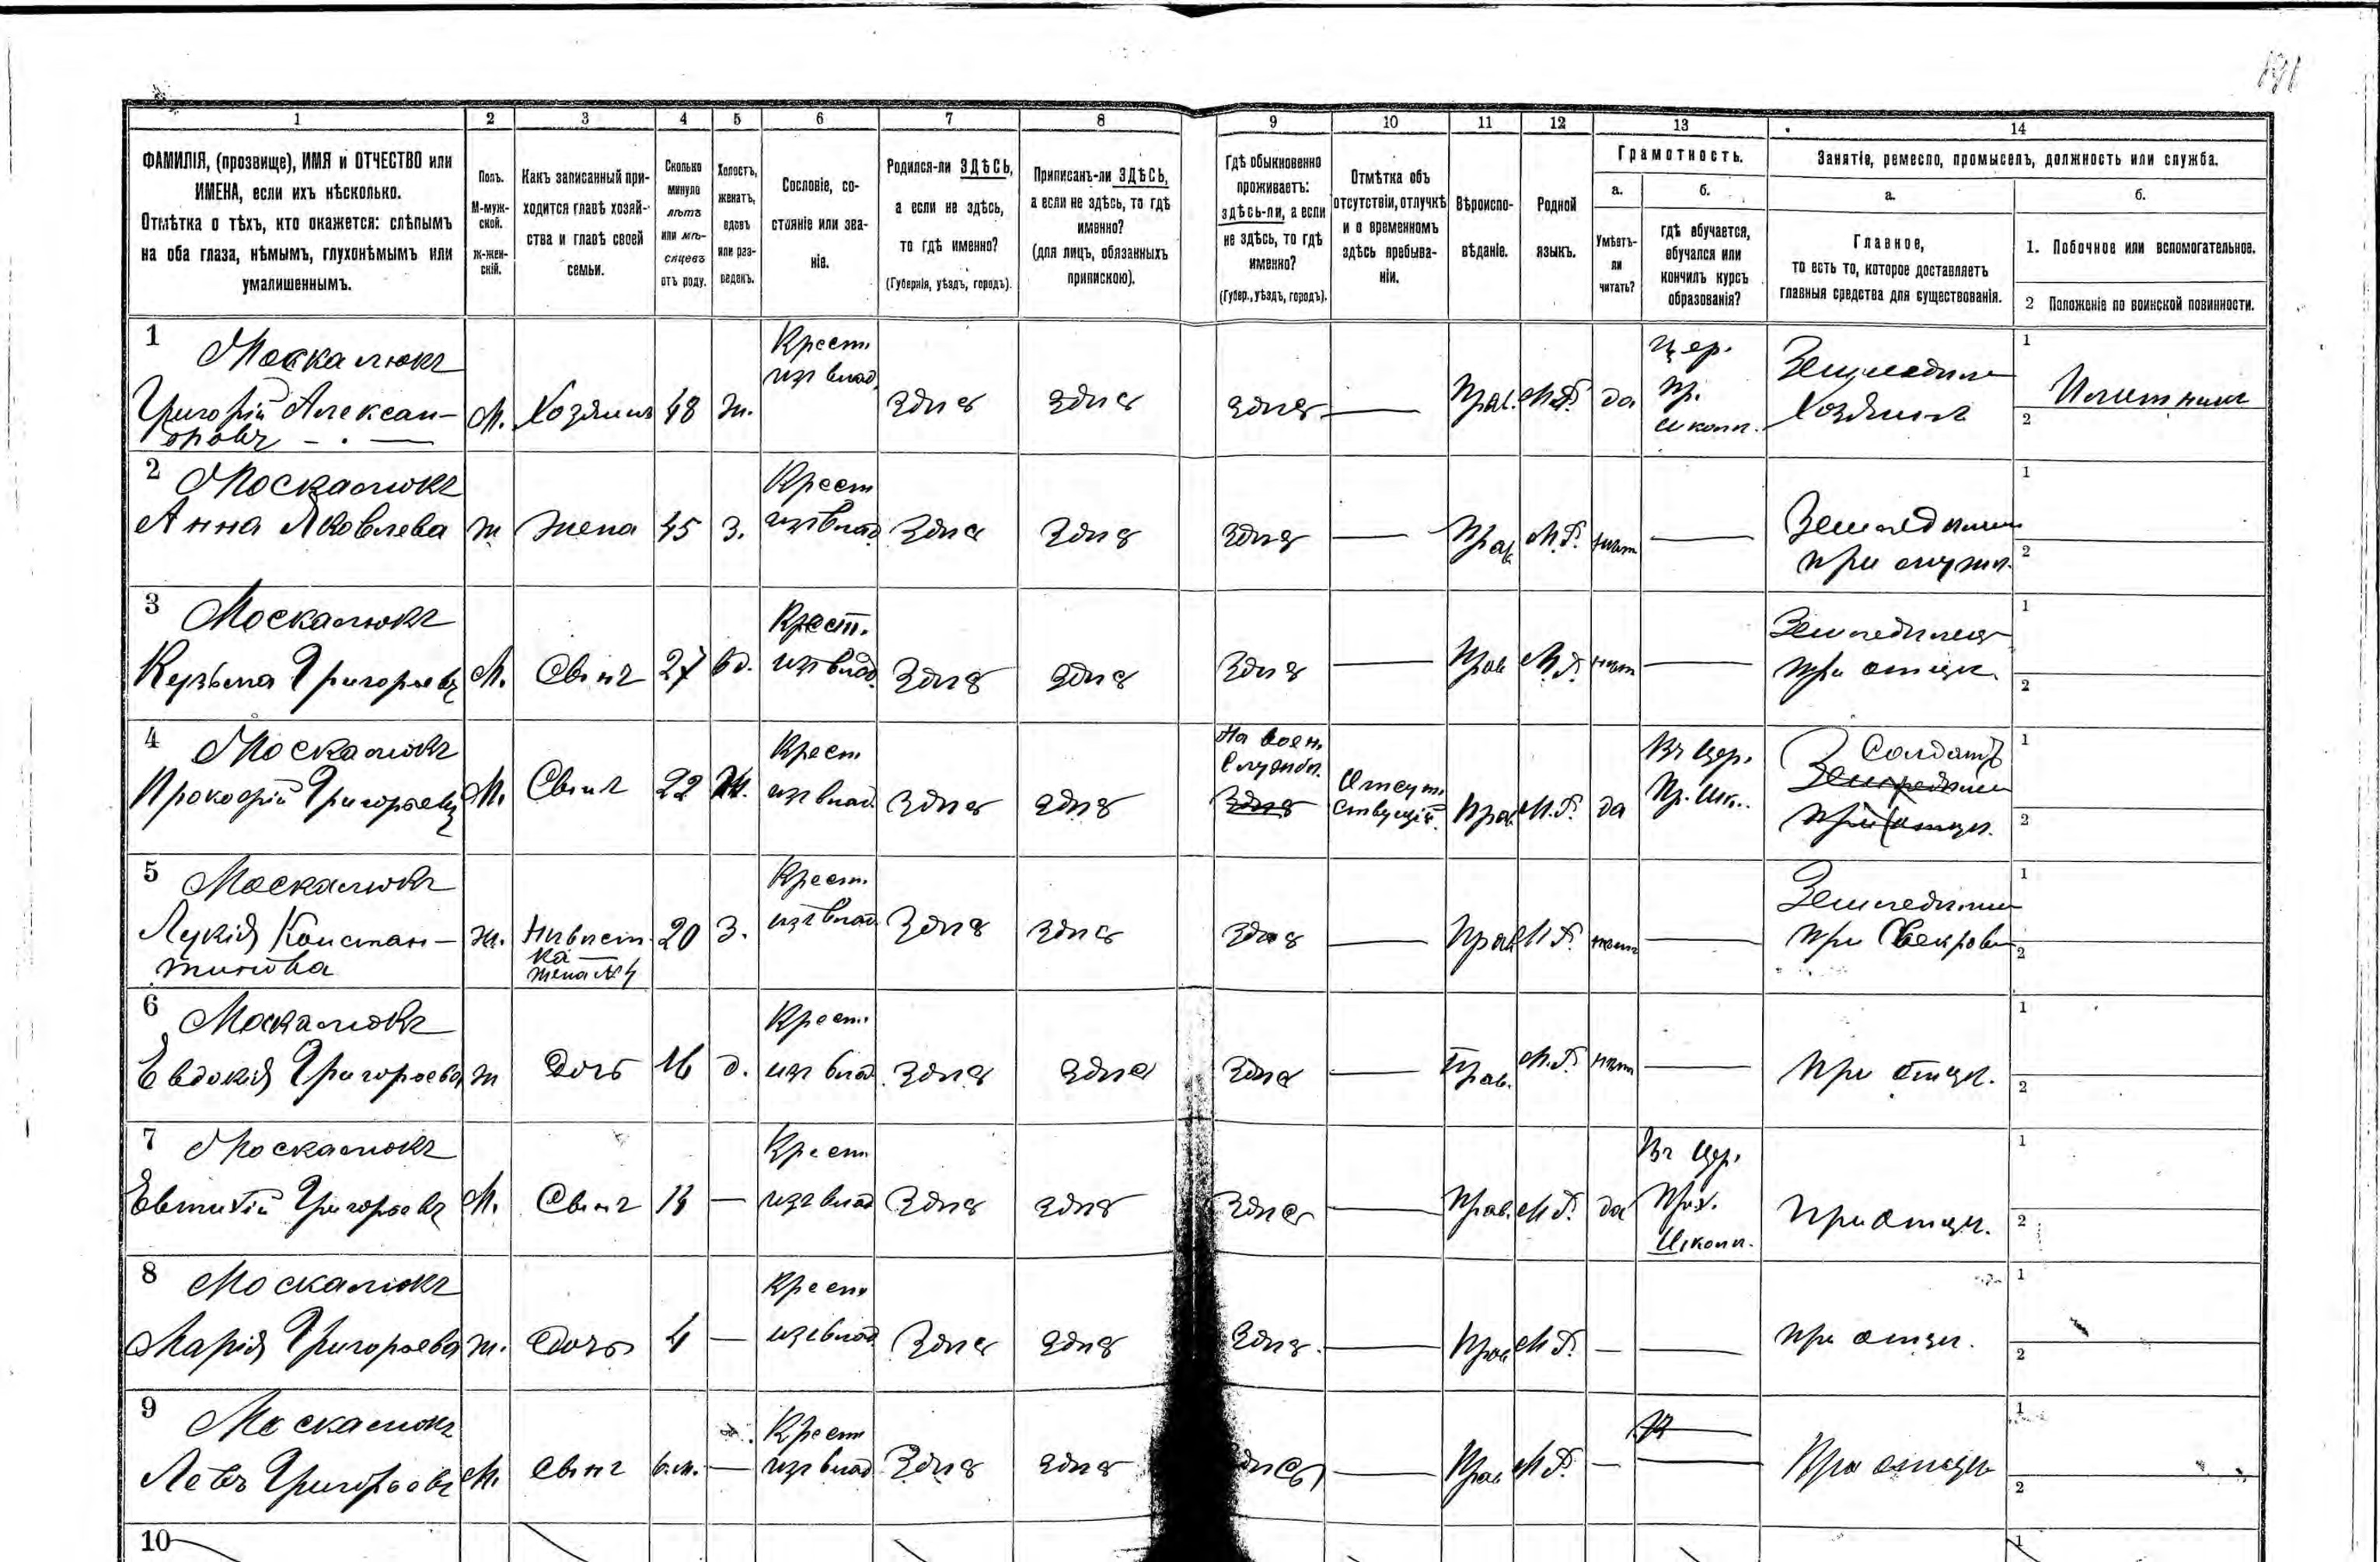 191
1 2 3 4 5 6 7 8 9 10 11 12 13 14
ФАМИЛІЯ, (прозвище), ИМЯ и ОТЧЕСТВО или
ИМЕНА, если ихъ нѣсколько.
Отмѣтка о тѣхъ, кто окажется: слѣпымъ
на оба глаза, нѣмымъ, глухонѣмымъ или
умалишеннымъ.
Полъ.
М-муж-
ской.
Ж-жен-
скій.
Какъ записанный при-
ходится главѣ хозяй-
ства и главѣ своей
семьи.
Сколько
минуло
лѣтъ
или мѣ-
сяцевъ
отъ роду.
Холостъ,
женатъ,
вдовъ
или раз-
веденъ.
Сословіе, со-
стояніе или зва-
ніе.
Родился-ли ЗДѢСЬ,
а если не здѣсь,
то гдѣ именно?
(Губернія, уѣздъ, городъ).
Приписанъ-ли ЗДѢСЬ,
а если не здѣсь, то гдѣ
именно?
(для лицъ, обязанныхъ
припискою).
Гдѣ обыкновенно
проживаетъ:
здѣсь-ли, а если
не здѣсь, то гдѣ
именно?
(Губер., уѣздъ, городъ).
Отмѣтка объ
отсутствіи, отлучкѣ
и о временномъ
здѣсь пребыва-
ніи.
Вѣроиспо-
вѣданіе.
Родной
языкъ.
Грамотность.
а.
Умѣетъ-
ли
читать?
б.
гдѣ обучается,
обучался или
кончилъ курсъ
образованія?
Занятіе, ремесло, промыселъ, должность или служба.
а.
Главное,
то есть то, которое доставляетъ
главныя средства для существованія.
б.
1. Побочное или вспомогательное.
2 Положеніе по воинской повинности.
1 Москалюкъ
Григорій Алексан-
дровъ
М. Хозяинъ 48 ж.
Крест.
изъ влад.
здѣсь здѣсь здѣсь — Прав. М.Р. да
Цер.
пр.
школ.
Земледѣл.
Хозяинъ
1
2
2 Москалюкъ
Анна Яковлева
ж Жена 45 з.
Крест
изъ влад
здѣсь здѣсь здѣсь — Прав М.Р. нѣт —
Земледѣліе
при мужѣ.
1
2
3 Москалюкъ
Кузьма Григорьевъ
М. Сынъ 27 вд.
Крест.
изъ влад.
здѣсь здѣсь здѣсь — Прав М.Р. нѣт —
Земледѣліе
при отцѣ.
1
2
4 Москалюкъ
Прокофій Григорьевъ
М. Сынъ 22 ж.
Крест
изъ влад.
здѣсь здѣсь
На воен.
службѣ.
здѣсь
Отсут-
ствующій.
Прав М.Р. да
Въ Цер.
Пр. шк.
Солдатъ
Земледѣліе
при отцѣ.
1
2
5 Москалюкъ
Лукія Констан-
тинова
ж.
Нивѣст-
ка
жена №4
20 з.
Крест.
изъ влад.
здѣсь здѣсь здѣсь — Прав М.Р. нѣт —
Земледѣліе
при Свекрови
1
2
6 Москалюкъ
Евдокія Григорьева
ж Дочь 16 д.
Крест.
изъ влад.
здѣсь здѣсь здѣсь — Прав. М.Р. нѣт — при отцѣ.
1
2
7 Москалюкъ
Евтихій Григорьевъ
М. Сынъ —
Крест
изъ влад
здѣсь здѣсь здѣсь — Прав. М.Р. да
Въ Цер.
Прих.
Школ.
при отцѣ.
1
2
8 Москалюкъ
Марія Григорьева
ж. Дочь 4 —
Крест
изъ влад
здѣсь здѣсь здѣсь. — Прав М.Р. — — при отцѣ.
1
2
9 Москалюкъ
Левъ Григорьевъ
М. Сынъ 6.м. —
Крест
изъ влад
здѣсь здѣсь здѣсь — Прав М.Р. — — При отцѣ
1
2
10
1